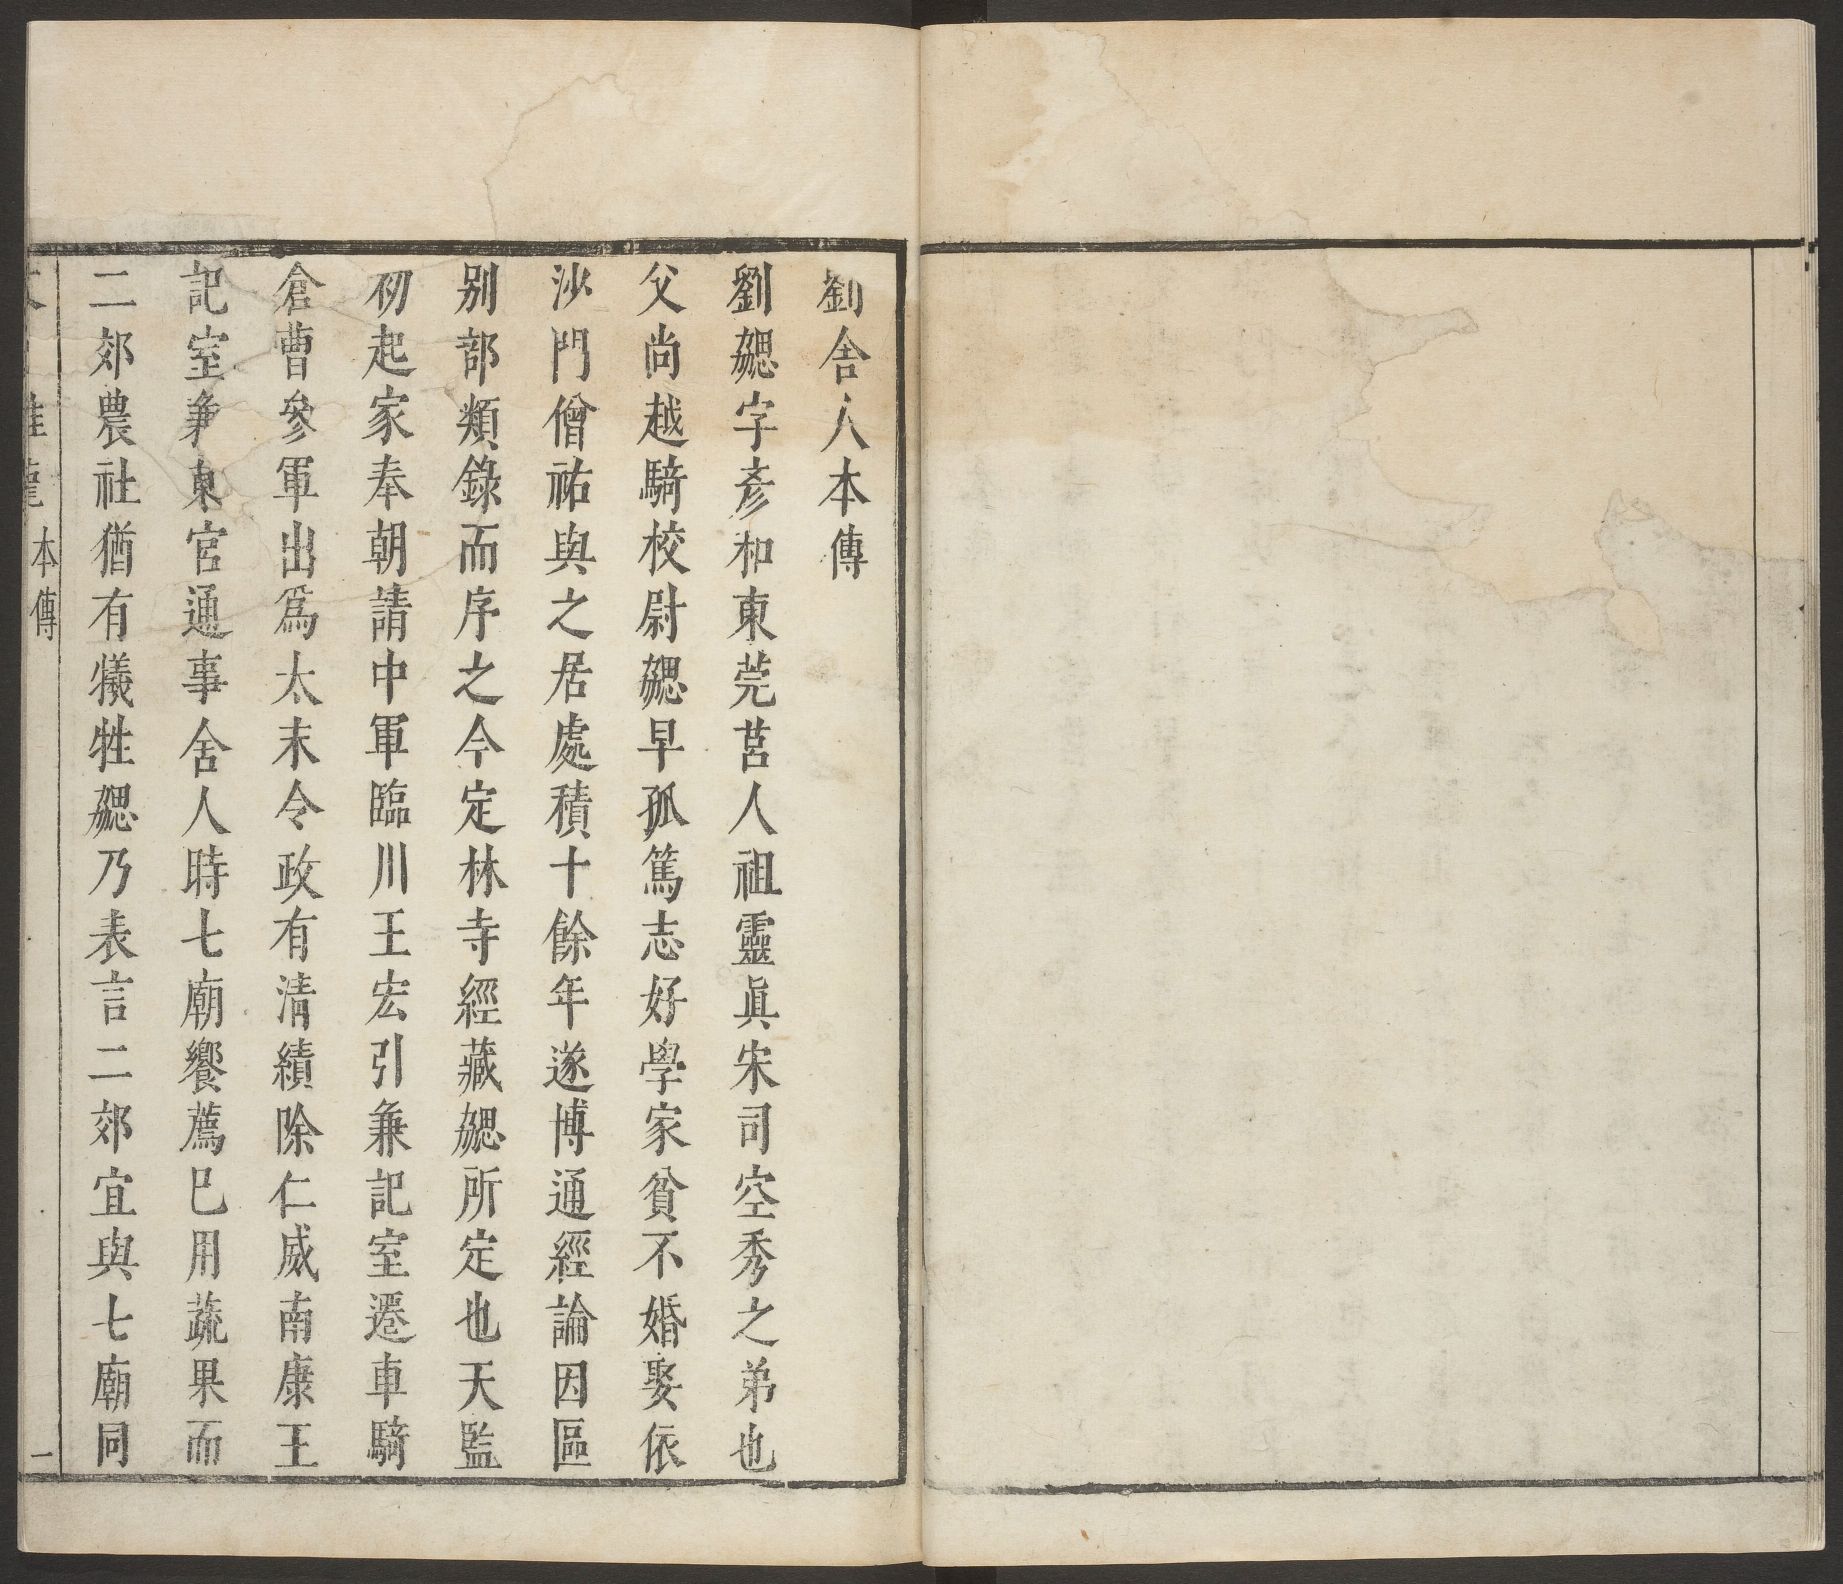 劉舍人本傳
劉勰字彥和東莞莒人祖靈眞宋司空秀之弟也
父尚越騎校尉勰早孤篤志好學家貧不婚娶依
沙門僧祐與之居處積十餘年遂博通經論因區
别部類錄而序之今定林寺經藏勰所定也天監
初起家奉朝請中軍臨川王宏引兼記室遷車騎
倉曹參軍出爲太末令政有清績除仁威南康王
記室兼東宮通事舍人時七廟饗薦巳用蔬果而
二郊農社猶有犧牲勰乃表言二郊宜與七廟同
雕龍 本傳 一